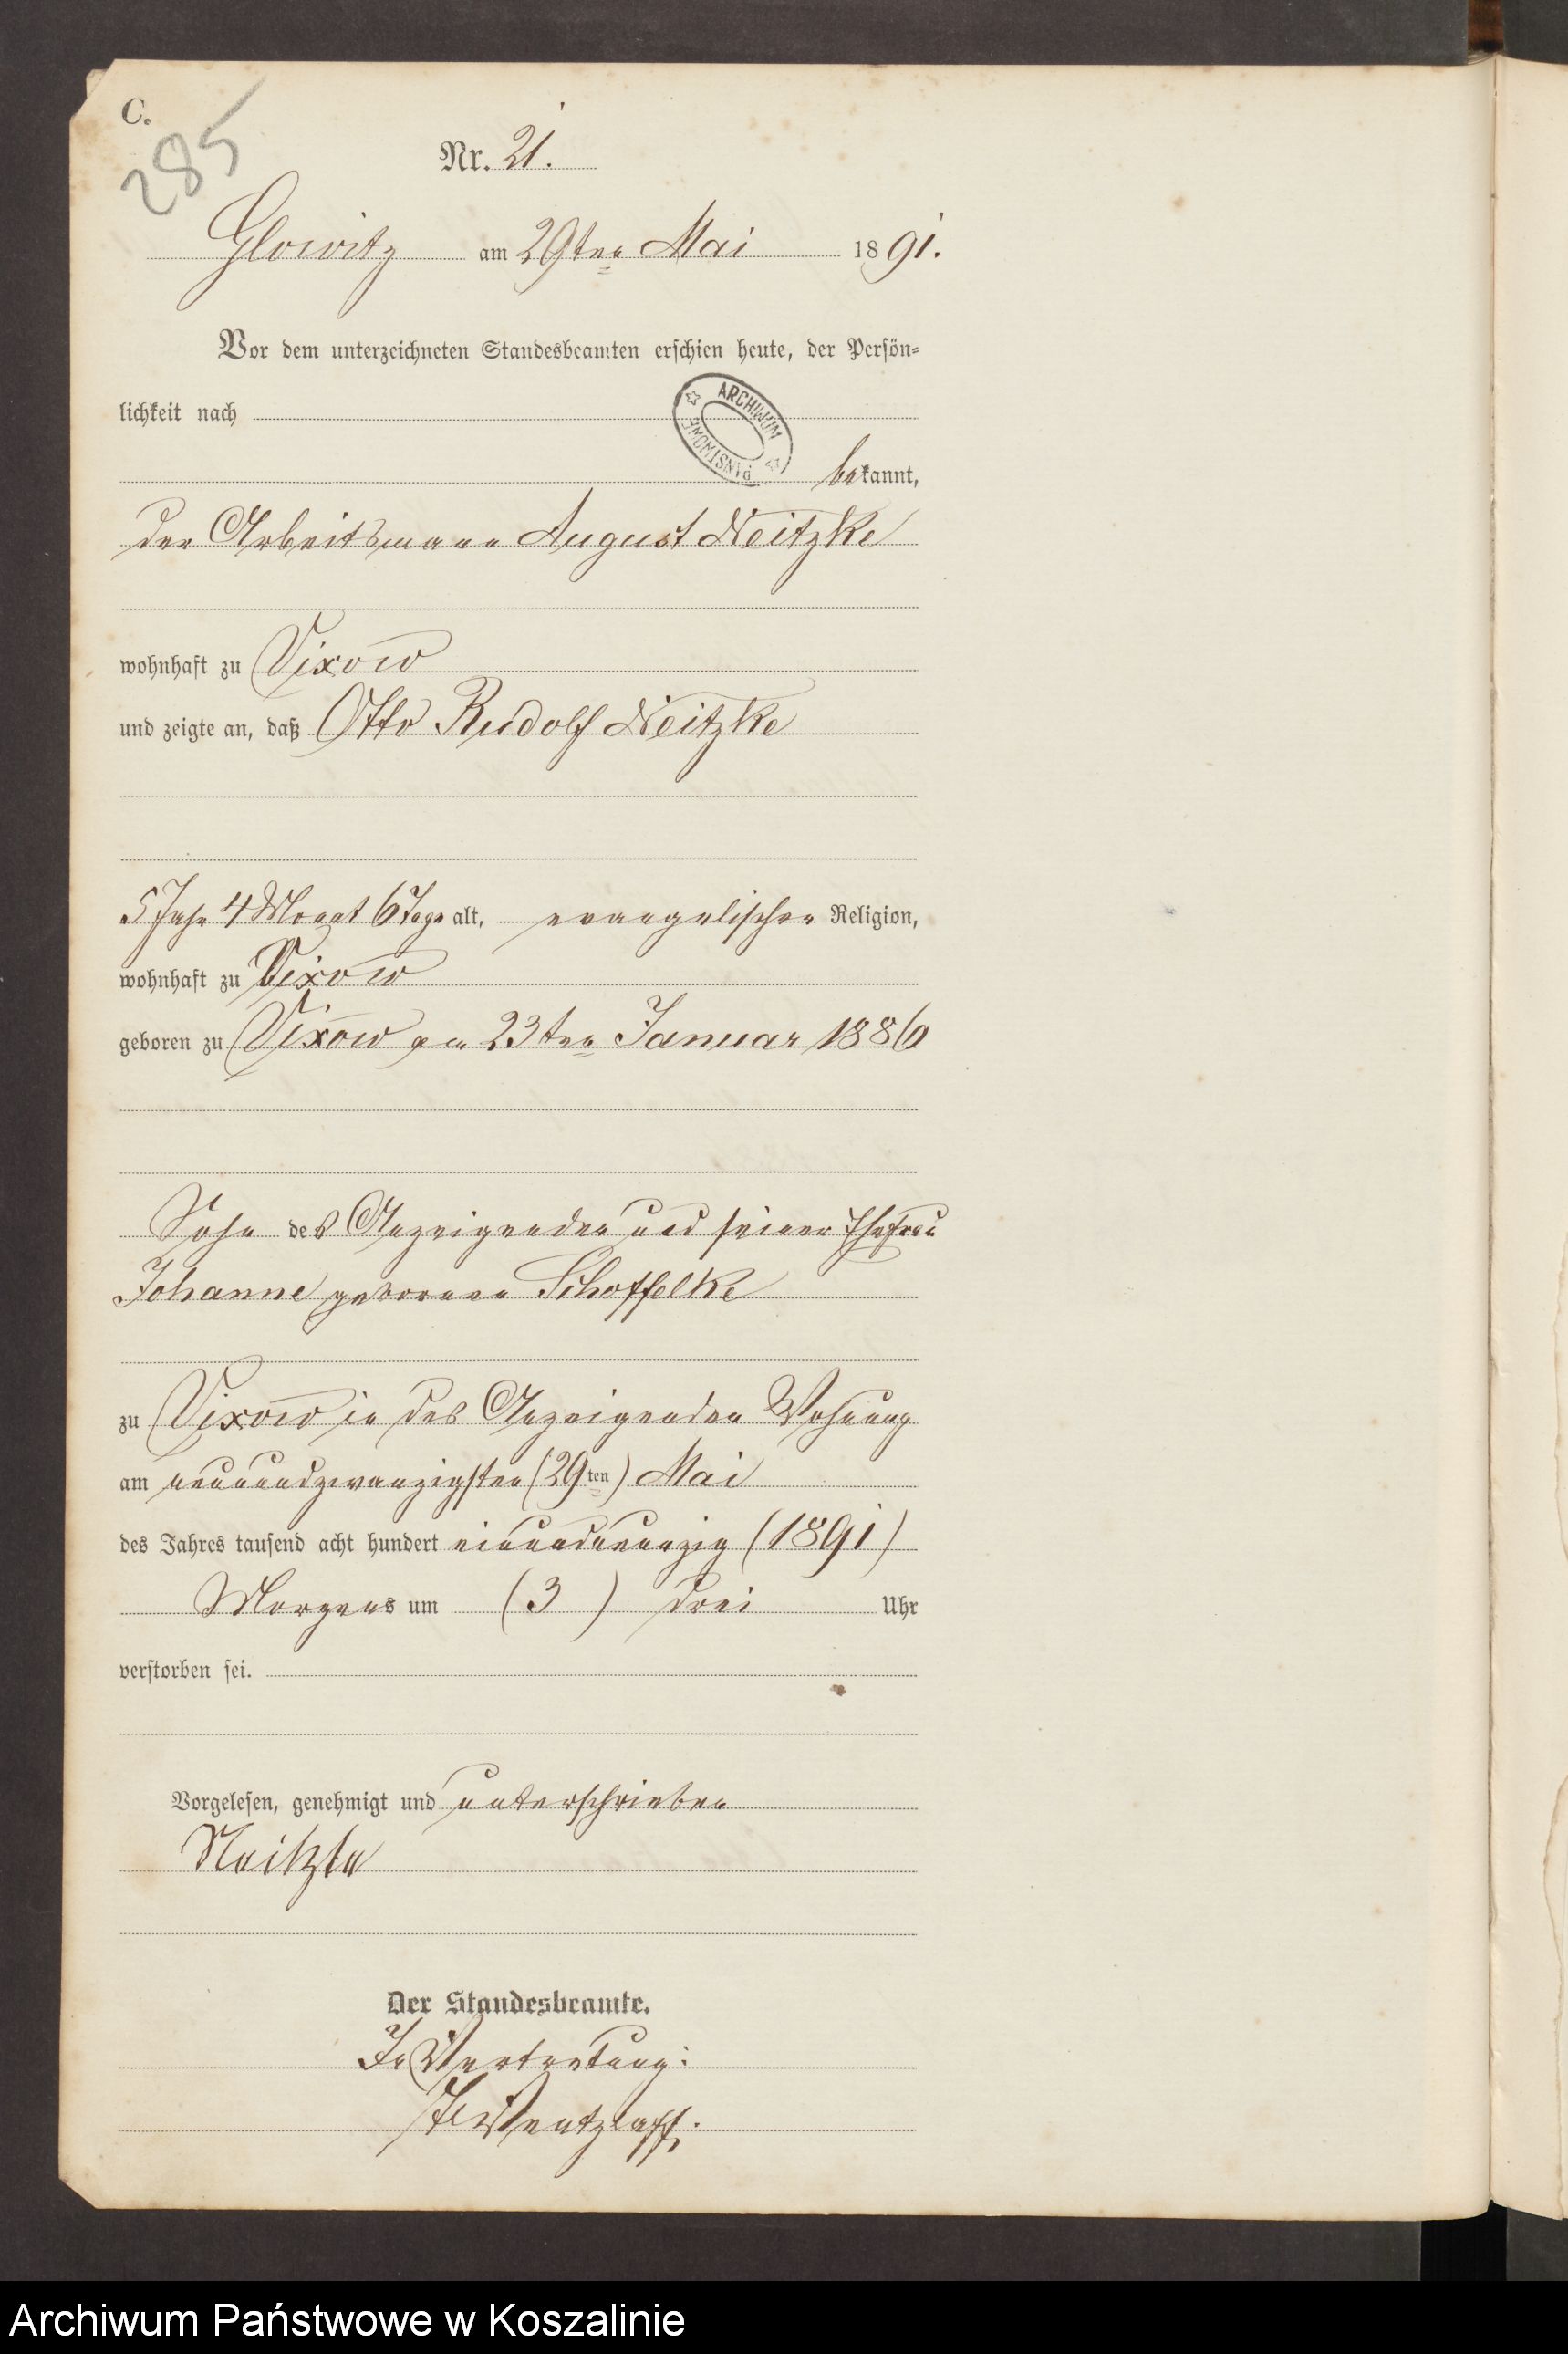 C.
285
Nr. 21.
Glowitz am 29ten Mai 1891.
Vor dem unterzeichneten Standesbeamten erschien heute, der Persön-
lichkeit nach
ARCHIWUM PAŃSTWOWE
bekannt,
der Arbeitsmann August Neitzke
wohnhaft zu Vixow
und zeigte an, daß Otto Rudolf Neitzke
5 Jahr 4 Monat 6 Tage alt, evangelischer Religion,
wohnhaft zu Vixow
geboren zu Vixow am 23ten Januar 1886
Sohn des Anzeigenden und seiner Ehefrau
Johanne geborene Schoffelke
zu Vixow in des Anzeigenden Wohnung
am neunundzwanzigsten (29ten) Mai
des Jahres tausend acht hundert einundneunzig (1891)
Morgens um (3) drei Uhr
verstorben sei.
Vorgelesen, genehmigt und unterschrieben
Neitzke
Der Standesbeamte.
In Vertretung:
Wentzlaff.
Archiwum Państwowe w Koszalinie